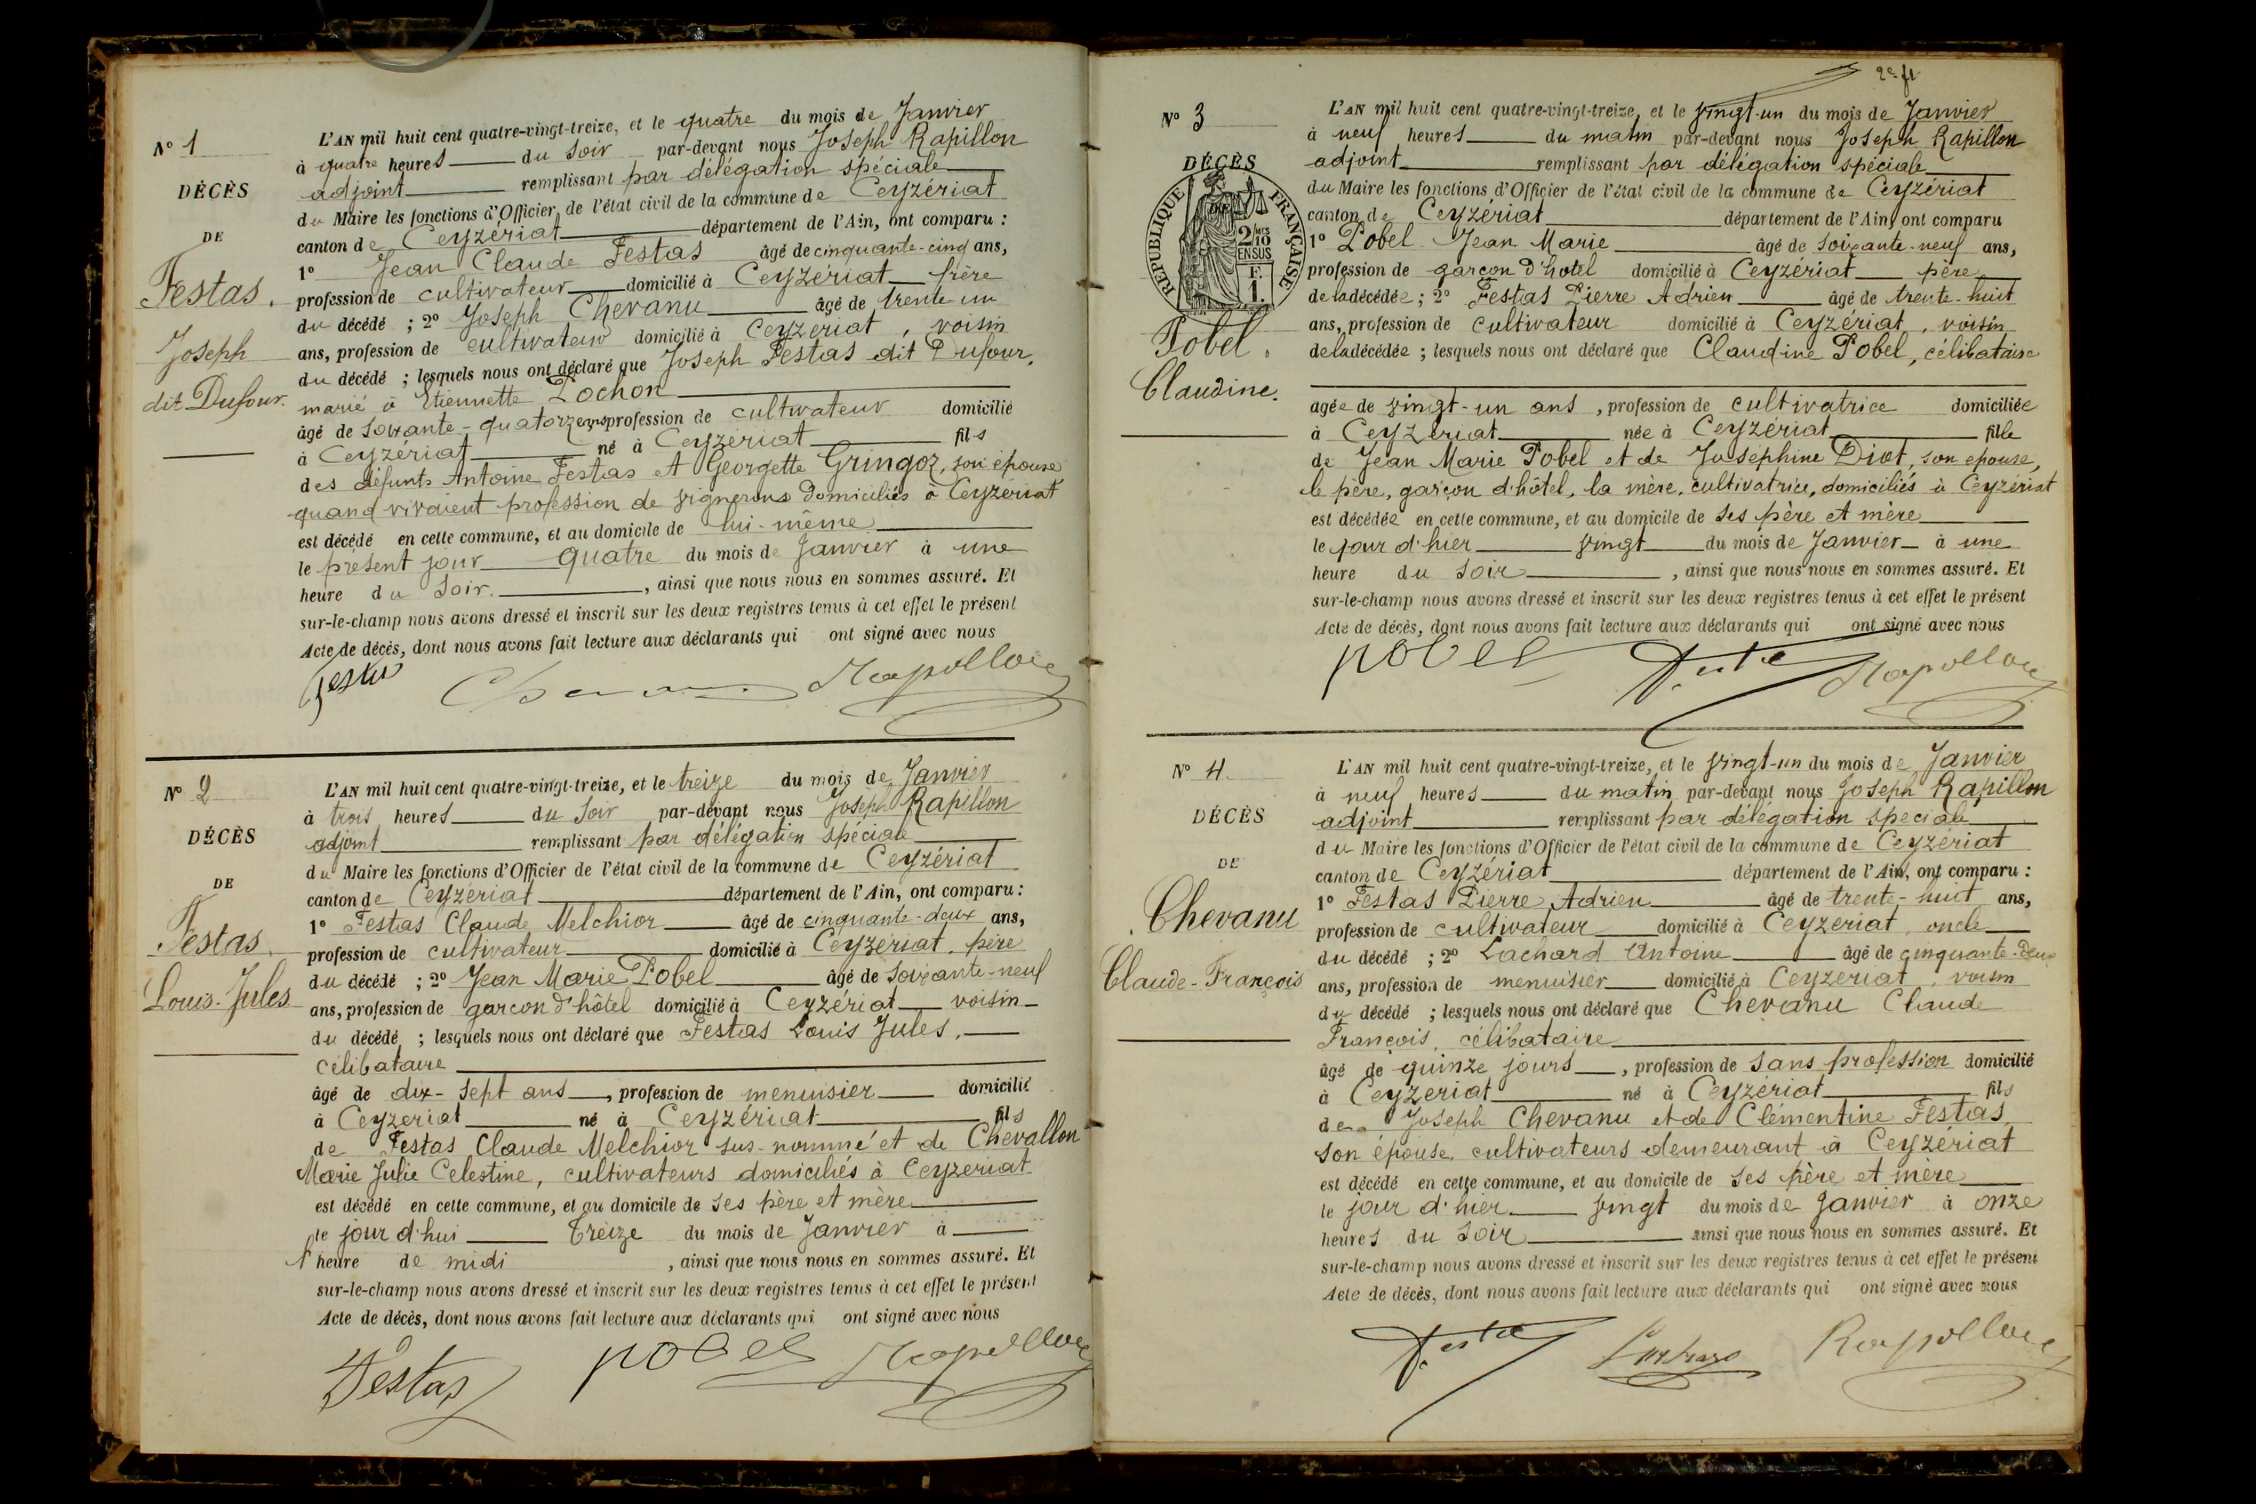 N° 1
DÉCÈS
DE
Festas.
Joseph
dit Dufour.
L'AN mil huit cent quatre-vingt-treize, et le quatre du mois de Janvier
à quatre heures du soir par-devant nous Joseph Rapillon
adjoint remplissant par délégation spéciale
du Maire les fonctions d'Officier de l'état civil de la commune de Ceyzériat
canton de Ceyzériat département de l'Ain, ont comparu :
1° Jean Claude Festas âgé de cinquante-cinq ans,
profession de cultivateur domicilié à Ceyzériat frère
du décédé ; 2° Joseph Chevanu âgé de trente un
ans, profession de cultivateur domicilié à Ceyzeriat, voisin
du décédé ; lesquels nous ont déclaré que Joseph Festas dit Dufour,
marié à Etiennette Pochon
âgé de soixante-quatorze ans profession de cultivateur domicilié
à Ceyzériat né à Ceyzériat fils
des défunts Antoine Festas et Georgette Gringoz, son épouse
quand vivaient profession de vignerons domiciliés à Ceyzériat
est décédé en cette commune, et au domicile de lui-même
le présent jour quatre du mois de Janvier à une
heure du soir. , ainsi que nous nous en sommes assuré. Et
sur-le-champ nous avons dressé et inscrit sur les deux registres tenus à cet effet le présent
Acte de décès, dont nous avons fait lecture aux déclarants qui ont signé avec nous
Rapillon
N° 2
DÉCÈS
DE
Festas.
Louis-Jules
L'AN mil huit cent quatre-vingt-treize, et le treize du mois de Janvier
à trois heures du soir par-devant nous Joseph Rapillon
adjoint remplissant par délégation spéciale
du Maire les fonctions d'Officier de l'état civil de la commune de Ceyzériat
canton de Ceyzériat département de l'Ain, ont comparu :
1° Festas Claude Melchior âgé de cinquante-deux ans,
profession de cultivateur domicilié à Ceyzériat, père
du décédé ; 2° Jean Marie Pobel âgé de soixante-neuf
ans, profession de garçon d'hôtel domicilié à Ceyzériat voisin
du décédé ; lesquels nous ont déclaré que Festas Louis Jules,
célibataire
âgé de dix-sept ans, profession de menuisier domicilié
à Ceyzeriat né à Ceyzériat fils
de Festas Claude Melchior sus-nommé et de Chevallon
Marie Julie Celestine, cultivateurs domiciliés à Ceyzeriat
est décédé en cette commune, et au domicile de ses père et mère
le jour d'hui treize du mois de Janvier à
1 heure de midi , ainsi que nous nous en sommes assuré. Et
sur-le-champ nous avons dressé et inscrit sur les deux registres tenus à cet effet le présent
Acte de décès, dont nous avons fait lecture aux déclarants qui ont signé avec nous
Festas pobel Rapillon
2e ft
N° 3
DÉCÈS
DE
RÉPUBLIQUE FRANÇAISE
2/10 EN SUS
F. 1.
Pobel.
Claudine.
L'AN mil huit cent quatre-vingt-treize, et le vingt-un du mois de Janvier
à neuf heures du matin par-devant nous Joseph Rapillon
adjoint remplissant par délégation spéciale
du Maire les fonctions d'Officier de l'état civil de la commune de Ceyzériat
canton de Ceyzériat département de l'Ain, ont comparu
1° Pobel Jean Marie âgé de soixante-neuf ans,
profession de garçon d'hotel domicilié à Ceyzériat père
de la décédée ; 2° Festas Pierre Adrien âgé de trente-huit
ans, profession de cultivateur domicilié à Ceyzériat, voisin
de la décédée ; lesquels nous ont déclaré que Claudine Pobel, célibataire
agée de vingt-un ans, profession de cultivatrice domiciliée
à Ceyzériat née à Ceyzériat fille
de Jean Marie Pobel et de Joséphine Diot, son épouse,
le père, garçon d'hôtel, la mère, cultivatrice, domiciliés à Ceyzériat
est décédée en cette commune, et au domicile de ses père et mère
le jour d'hier vingt du mois de Janvier à une
heure du soir , ainsi que nous nous en sommes assuré. Et
sur-le-champ nous avons dressé et inscrit sur les deux registres tenus à cet effet le présent
Acte de décès, dont nous avons fait lecture aux déclarants qui ont signé avec nous
pobel Rapillon
N° 4.
DÉCÈS
DE
Chevanu
Claude-François
L'AN mil huit cent quatre-vingt-treize, et le vingt-un du mois de Janvier
à neuf heures du matin par-devant nous Joseph Rapillon
adjoint remplissant par délégation spéciale
du Maire les fonctions d'Officier de l'état civil de la commune de Ceyzériat
canton de Ceyzériat département de l'Ain, ont comparu :
1° Festas Pierre Adrien âgé de trente-huit ans,
profession de cultivateur domicilié à Ceyzeriat oncle
du décédé ; 2° Lachard Antoine âgé de cinquante-deux
ans, profession de menuisier domicilié à Ceyzeriat, voisin
du décédé ; lesquels nous ont déclaré que Chevanu Claude
François, célibataire
âgé de quinze jours, profession de sans profession domicilié
à Ceyzeriat né à Ceyzériat fils
de Joseph Chevanu et de Clémentine Festas,
son épouse, cultivateurs demeurant à Ceyzériat
est décédé en cette commune, et au domicile de ses père et mère
le jour d'hier vingt du mois de Janvier à onze
heures du soir ainsi que nous nous en sommes assuré. Et
sur-le-champ nous avons dressé et inscrit sur les deux registres tenus à cet effet le présent
Acte de décès, dont nous avons fait lecture aux déclarants qui ont signé avec nous
Rapillon